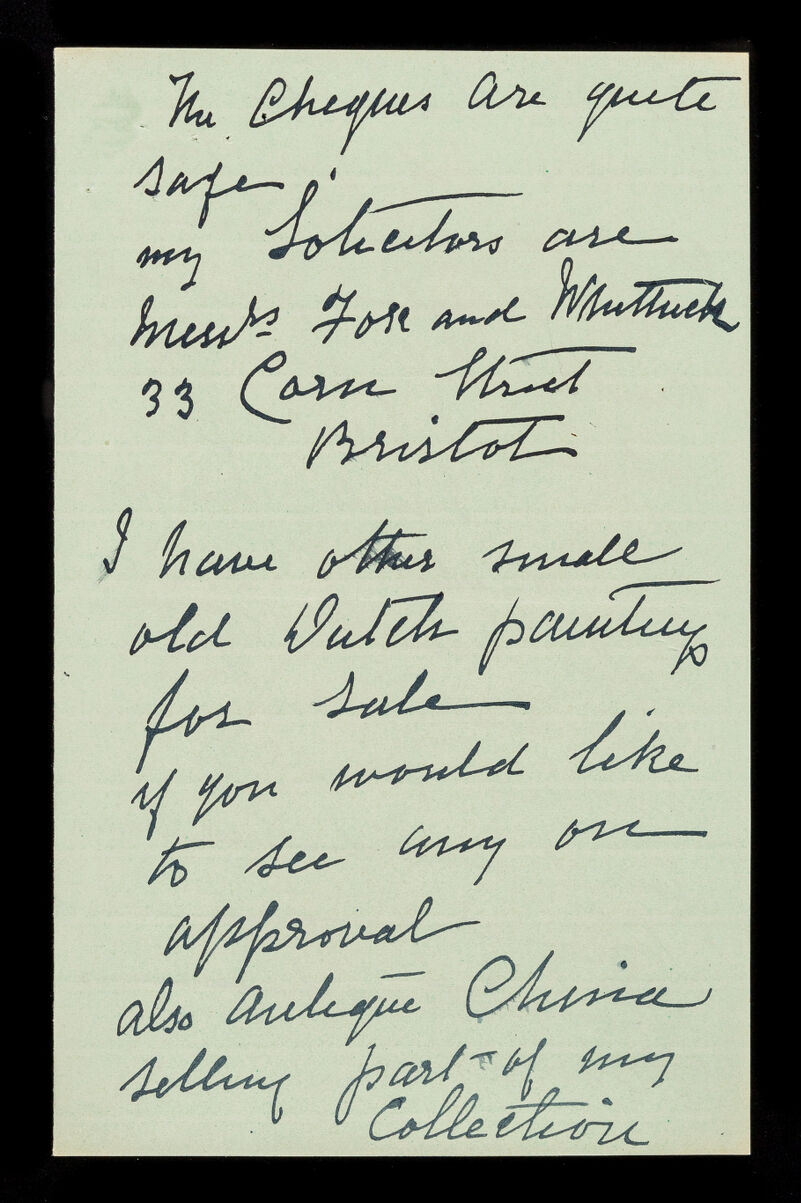 The Cheques are quite
safe.
my Solicitors are
Messrs Fox and Whittuck
33 Corn Street
Bristol
I have other small
old Dutch paintings
for sale
if you would like
to see any on
approval
also antique China
selling part of my
Collection